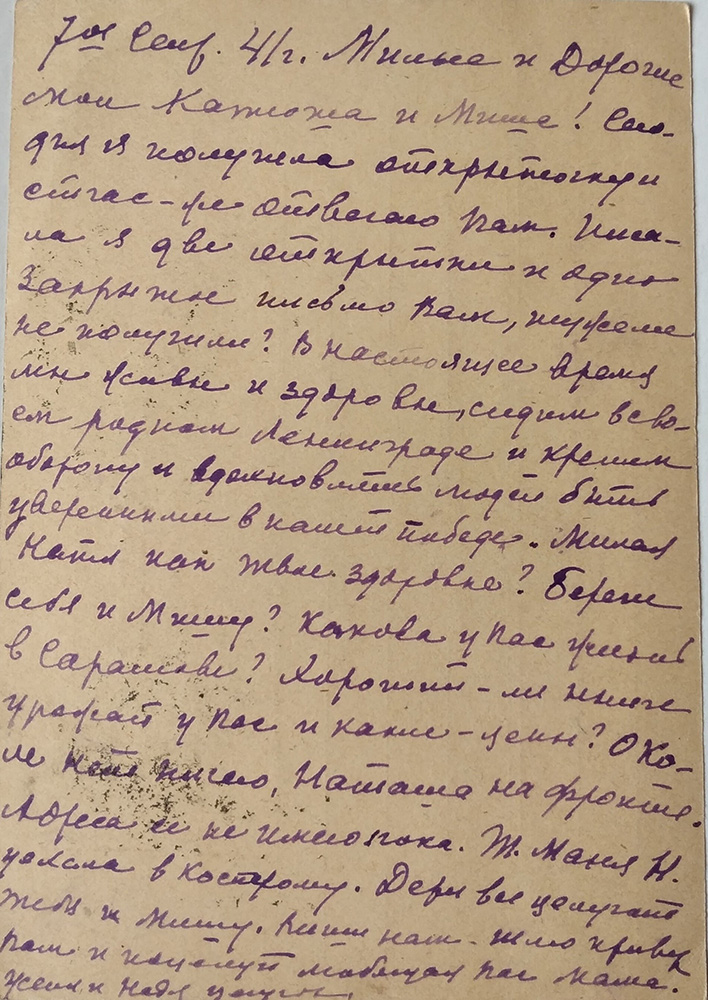 7ое Сент. 41г. Милые и Дорогие
мои Катюша и Миша! Сего-
дня я получила открыточку и
сейчас-же отвечаю Вам. Писа-
ла я две открытки и одно
закрытое письмо Вам, неужели
не получили? В настоящее время
мы живы и здоровы, сидим в сво-
ем родном Ленинграде и крепим
оборону и вдохновляем людей быть
уверенными в нашей победе. Милая
Катя как твое здоровье? Береги
себя и Мишу? Какова у Вас жизнь
в Саратове? Хороший-ли ныне
урожай у Вас и какие-цены? О Ко-
ле нет ничего, Наташа на фронте.
Адреса ее не имею пока. Т. Маня Н.
уехала в Кострому. Дети все целуют
тебя и Мишу. Пиши нам. Шлю привет
Вам и поцелуй любящая Вас мама.
Женя и Надя